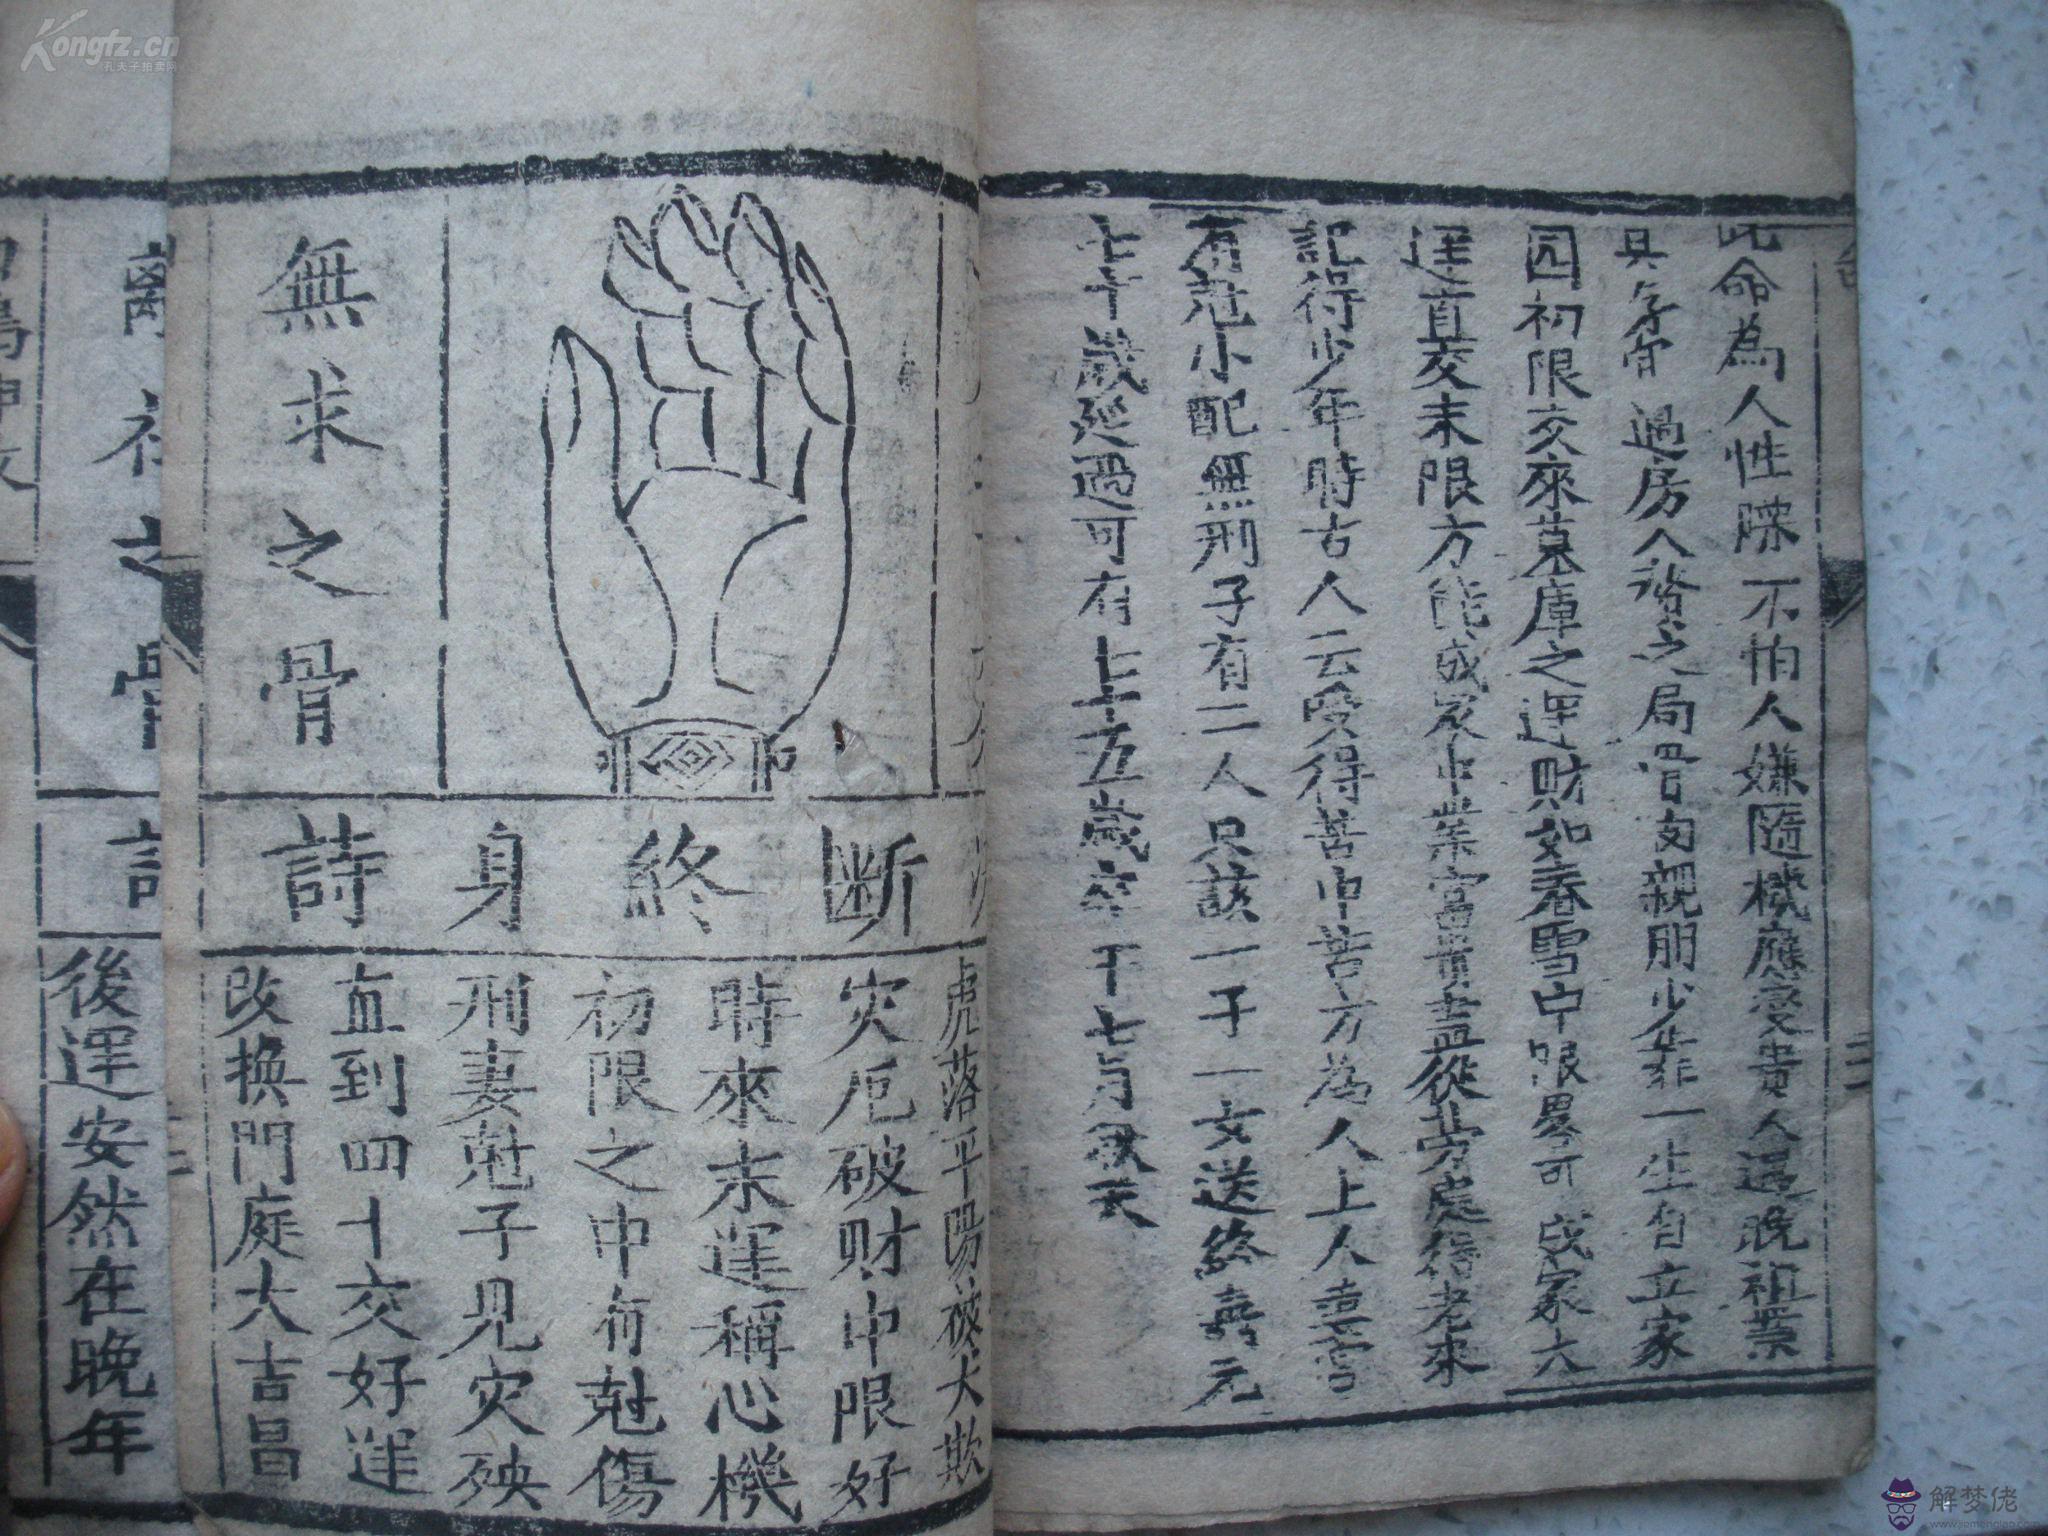 此命為人性躁不怕人嫌隨機應變貴人逼晚祖業
過房入贅之局骨肉親朋少靠一生自立家
因初限交來墓庫之運財如春雪中限畧可成家六
運直交末限方能成家中業富貴盡從勞處得老來
記得少年時古人云受得苦中苦方為人上人喜
有尅小配無刑子有二人只該一子一女送終壽元
七十歲延過可有七十五歲卒于七月歸天
虎落平陽被犬欺
災厄破财中限好
時來末運稱心機
初限之中有尅傷
刑妻尅子見災殃
直到四十交好運
改換門庭大吉昌
断終身詩
無求之骨
之骨
後運安然在晚年
Kongfz.cn
孔夫子拍卖网
解梦佬